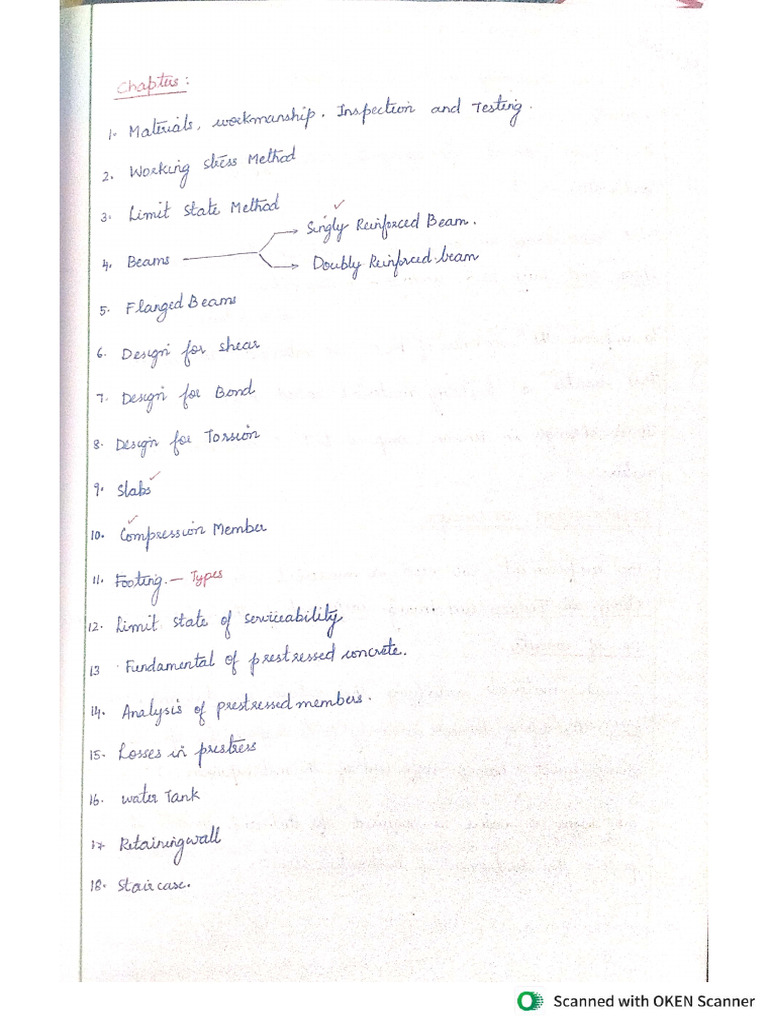 Chapters:
1. Materials, workmanship. Inspection and Testing.
2. Working stress Method
3. Limit state Method
4. Beams
Singly Reinforced Beam.
Doubly Reinforced beam
5. Flanged Beams
6. Design for shear
7. Design for Bond
8. Design for Torsion
9. Slabs
10. Compression Member
11. Footing. — Types
12. Limit state of serviceability
13. Fundamental of prestressed concrete.
14. Analysis of prestressed members.
15. Losses in prestress
16. water Tank
17. Retaining wall
18. Stair case.
Scanned with OKEN Scanner